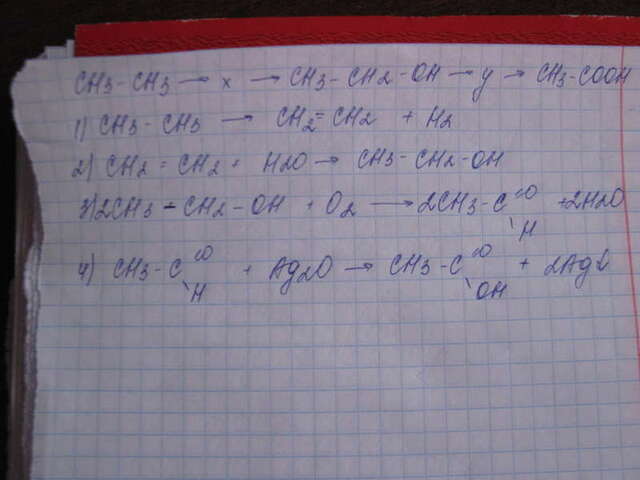 CH3-CH3 → x → CH3-CH2-OH → y → CH3-COOH
1) CH3-CH3 → CH2=CH2 + H2
2) CH2=CH2 + H2O → CH3-CH2-OH
3) 2CH3-CH2-OH + O2 → 2CH3-C=O +2H2O
H
4) CH3-C=O + Ag2O → CH3-C=O + 2Ag↓
H OH